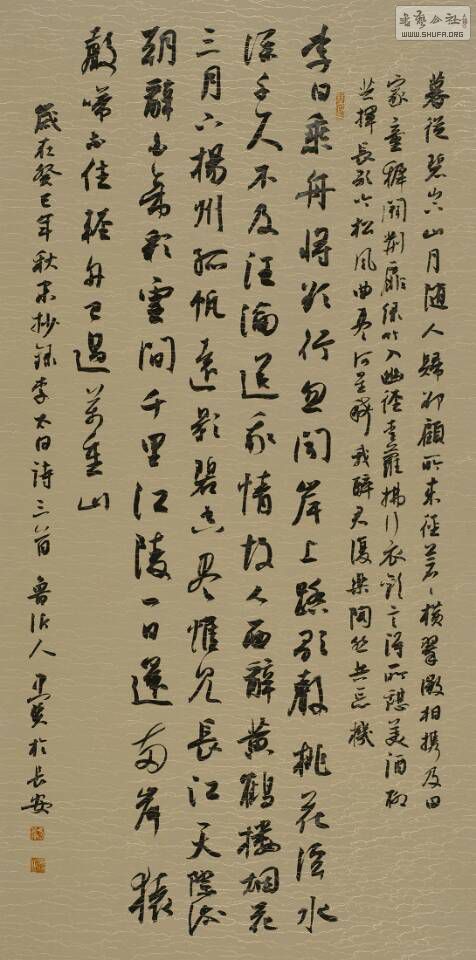 書藝公社
WWW.SHUFA.ORG
暮從碧山下山月隨人歸卻顧所來徑蒼〻橫翠微相攜及田
家童稚開荊扉綠竹入幽徑青蘿拂行衣歡言得所憩美酒聊
共揮長歌吟松風曲盡河星稀我醉君復樂陶然共忘機
李白乘舟將欲行忽聞岸上踏歌聲桃花潭水
深千尺不及汪倫送我情故人西辭黃鶴樓烟花
三月下楊州孤帆遠影碧空盡惟見長江天際流
朝辭白帝彩雲間千里江陵一日還兩岸猿
聲啼不住輕舟已過萬重山
歲在癸巳年秋末抄錄李太白詩三首 魯沂人 於長安